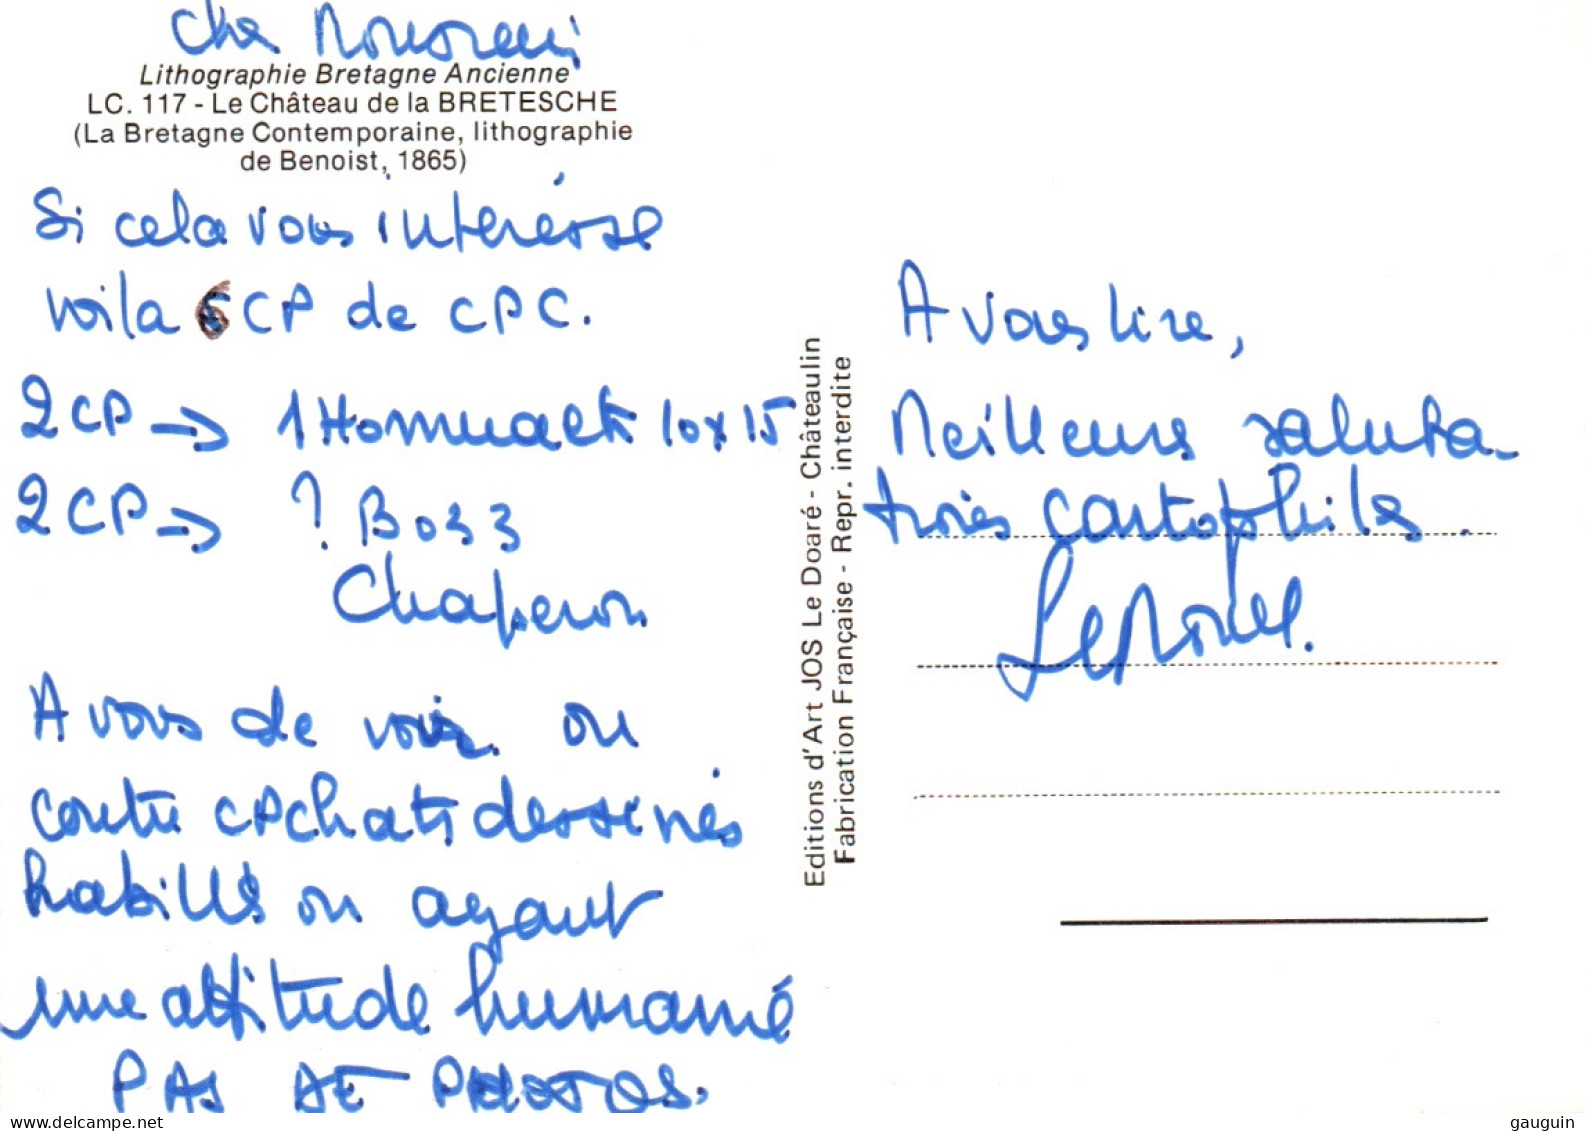 Cher Monsieur,
Lithographie Bretagne Ancienne
LC. 117 - Le Château de la BRETESCHE
(La Bretagne Contemporaine, lithographie
de Benoist, 1865)
Si cela vous intéresse
voila 6 CP de CPC.
2 CP → 1 Homualk 10x15
2 CP → ? Bozz
Chaperon
A vous de voir ou
contre CP chats dessinés
habillés ou ayant
une attitude humaine
PAS DE PHOTOS.
A vous lire,
Meilleures saluta-
tions cartophiles.
Editions d'Art JOS Le Doaré - Châteaulin
Fabrication Française - Repr. interdite
delcampe.net
gauguin